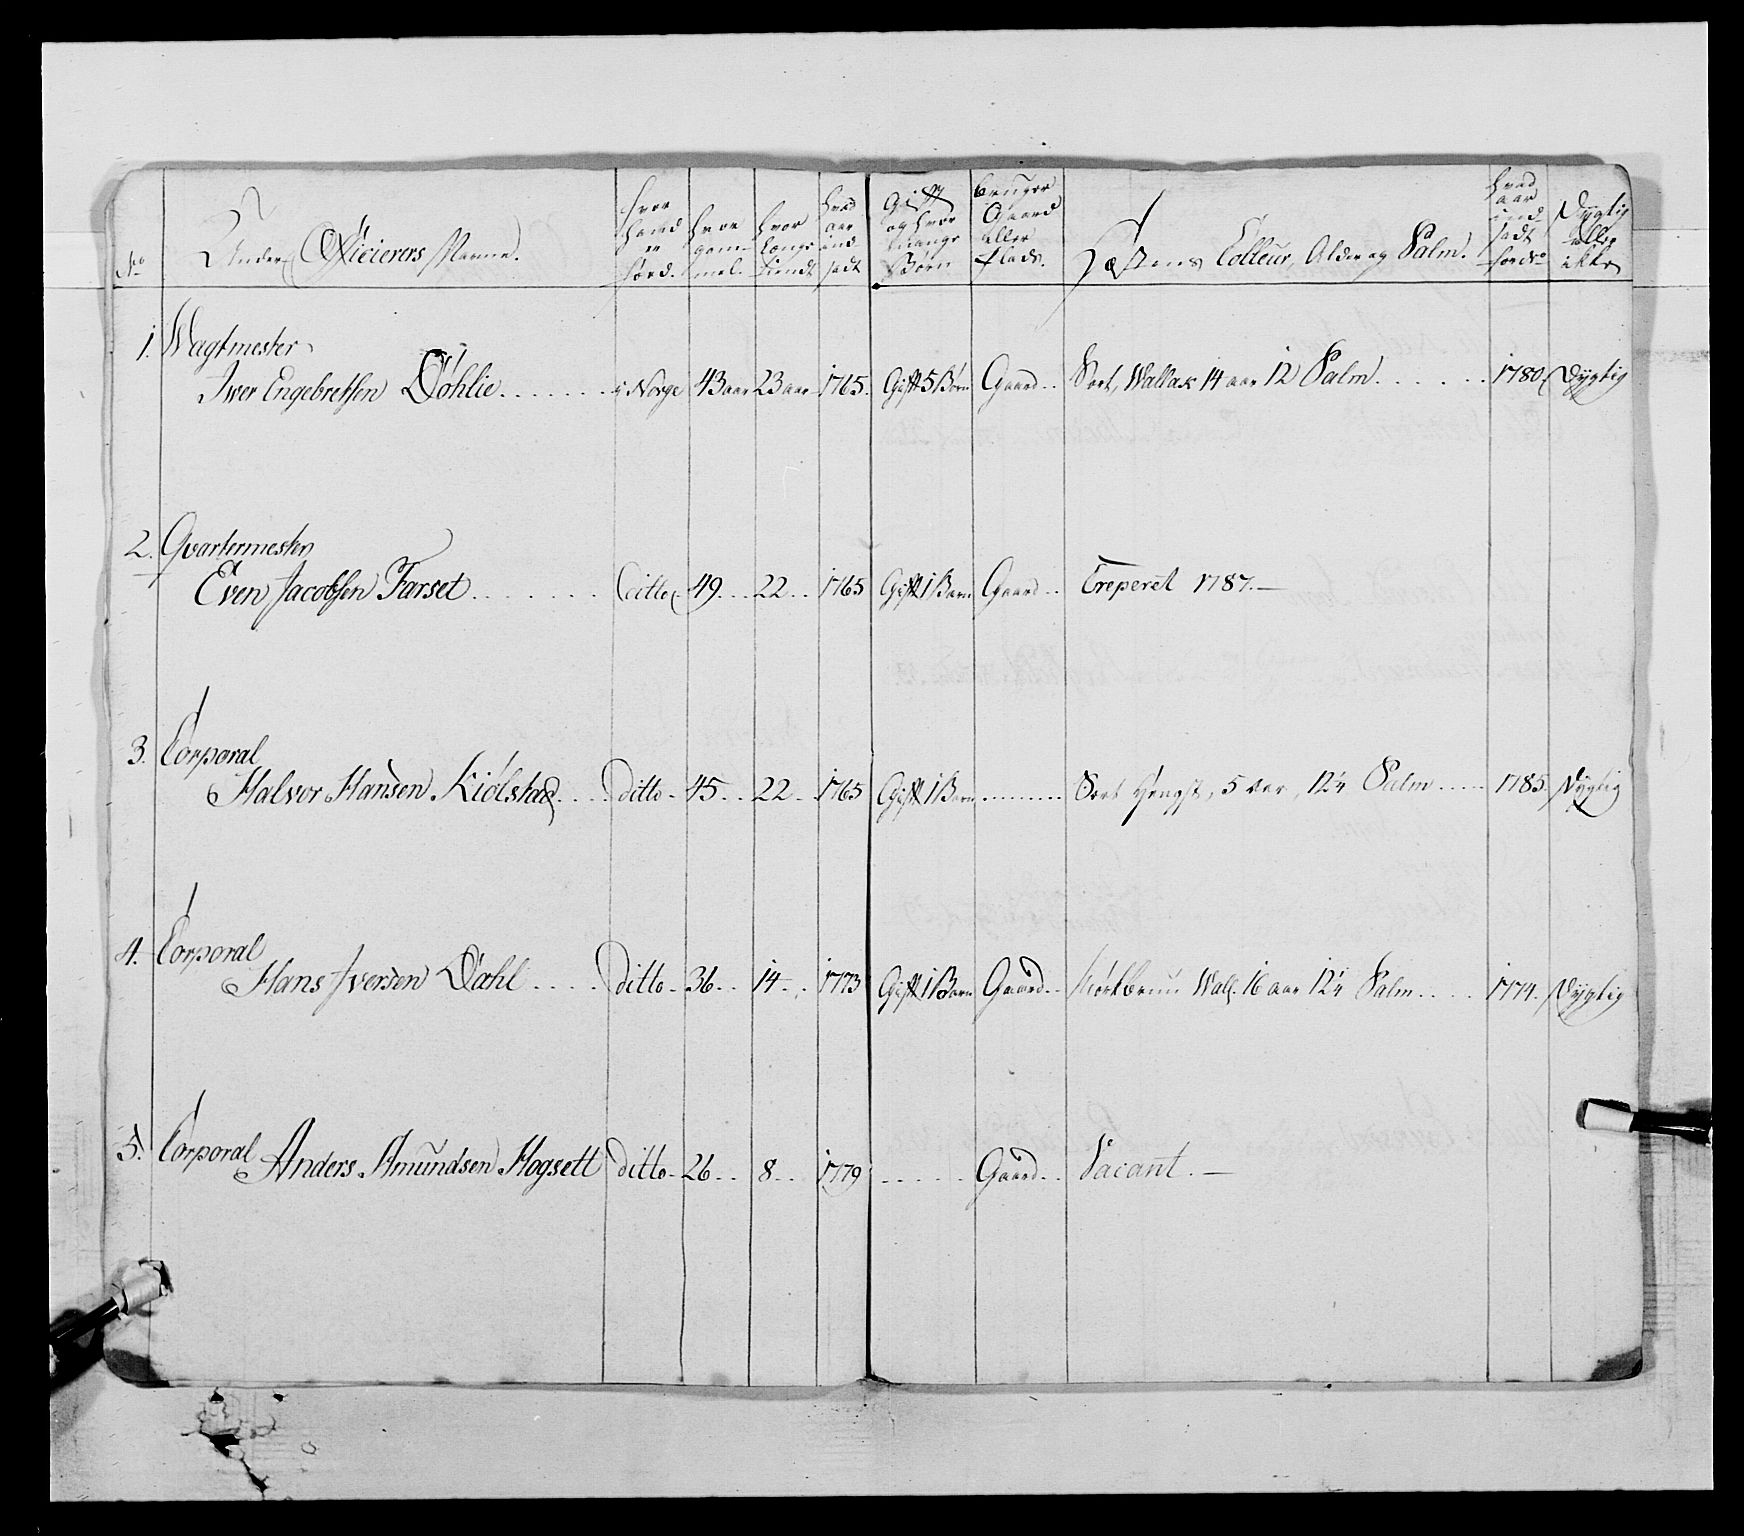 No
Under Officierers Nafne.
hvor
hand
er
föed.
hvor
gam-
mel.
hvor
længe
tiendt
hvad
aar
ind
sadt
Gift
og hvor
mange
Börn
bruger
Gaard
eller
Plads.
Hæstens Colleur, Alder og Palm.
hvad
aar
ind
sadt
Dygtig
eller
ikke
1. Wagtmester
Iver Engebretsen Döhlie....... i Norge 43 aar 23 aar 1765. Gift 5 Börn Gaard.. Sort, Wallak 14 aar 12 Palm...... 1780. Dygtig
2. Qvartermester
Even Jacobsen Farset....... Ditto 49... 22.. 1765 Gift 1 Barn Gaard.. Creperet 1787.—
3. Corporal
Halvor Hansen Kiölstad.... Ditto- 45.. 22.. 1765 Gift 1 Barn ........ Sort Hingst, 5 aar, 12¼ Palm..... 1785. Dygtig
4. Corporal
Hans Iversen Dahl.... Ditto- 36.. 14.. 1773 Gift 1 Barn Gaard.. Mörkbrun Wall. 16 aar 12¼ Palm.... 1774. Dygtig
5. Corporal Anders Amundsen Hogsett Ditto- 26.. 8.. 1779 ..... Gaard.. Vacant.—